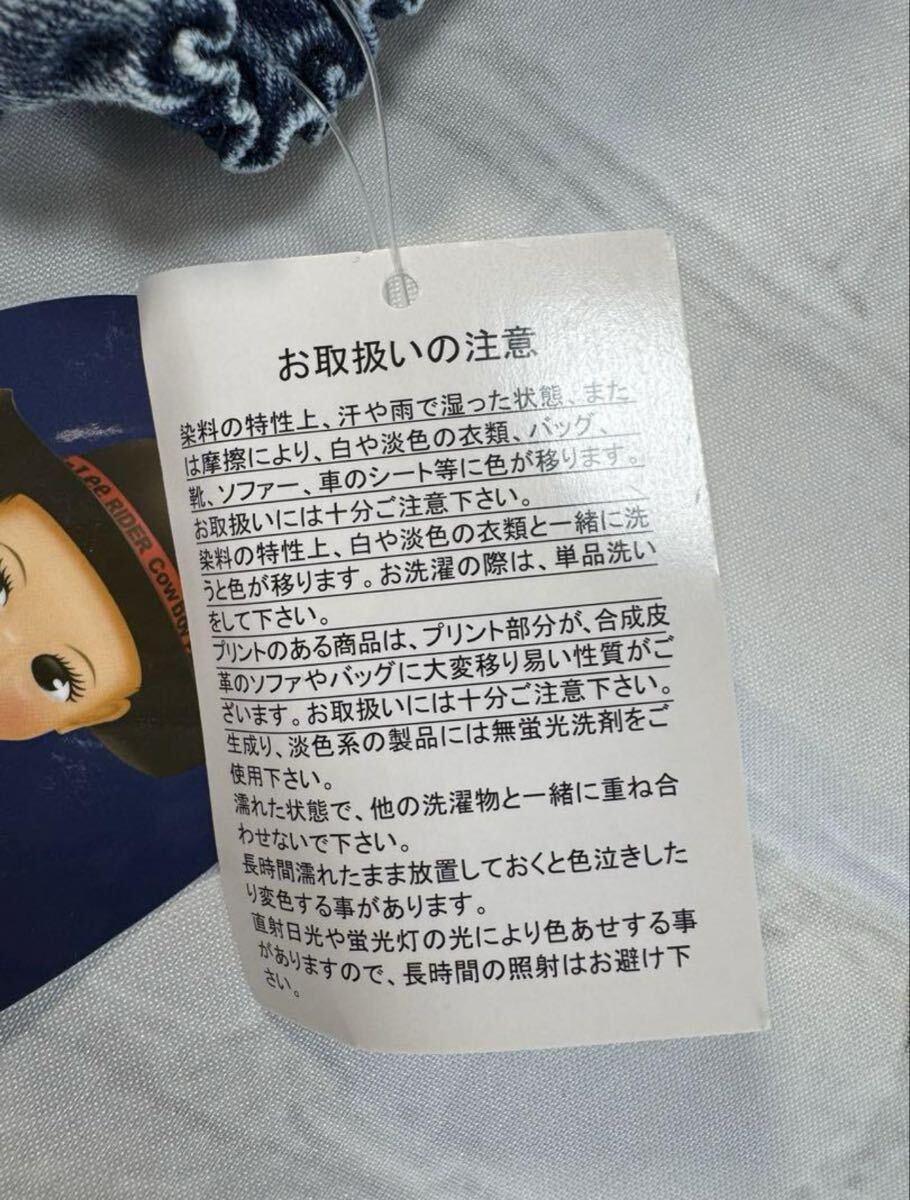 お取扱いの注意
染料の特性上、汗や雨で湿った状態、また
は摩擦により、白や淡色の衣類、バッグ、
靴、ソファー、車のシート等に色が移ります。
お取扱いには十分ご注意下さい。
染料の特性上、白や淡色の衣類と一緒に洗
うと色が移ります。お洗濯の際は、単品洗い
をして下さい。
プリントのある商品は、プリント部分が、合成皮
革のソファやバッグに大変移り易い性質がご
ざいます。お取扱いには十分ご注意下さい。
生成り、淡色系の製品には無蛍光洗剤をご
使用下さい。
濡れた状態で、他の洗濯物と一緒に重ね合
わせないで下さい。
長時間濡れたまま放置しておくと色泣きした
り変色する事があります。
直射日光や蛍光灯の光により色あせする事
がありますので、長時間の照射はお避け下
さい。
Lee RIDER Cowboy